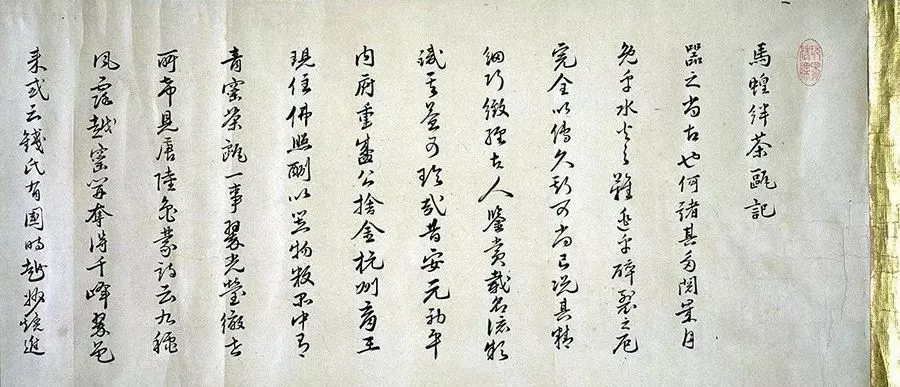 馬蝗絆茶甌記
器之尚古也何諸其多閲歳月
免乎水火之難逃乎碎裂之厄
完全以傳久斯可尚已况其精
細巧緻經古人鑒賞載名流款
識其益可珍哉昔安元初平
内府重盛公捨金杭州育王
現住佛照酬以器物數品中有
青窯茶甌一事翠光瑩徹世
所希見唐陸龜蒙詩云九穐
風露越窯開奪得千峰翠色
来或云錢氏有國時越州燒進